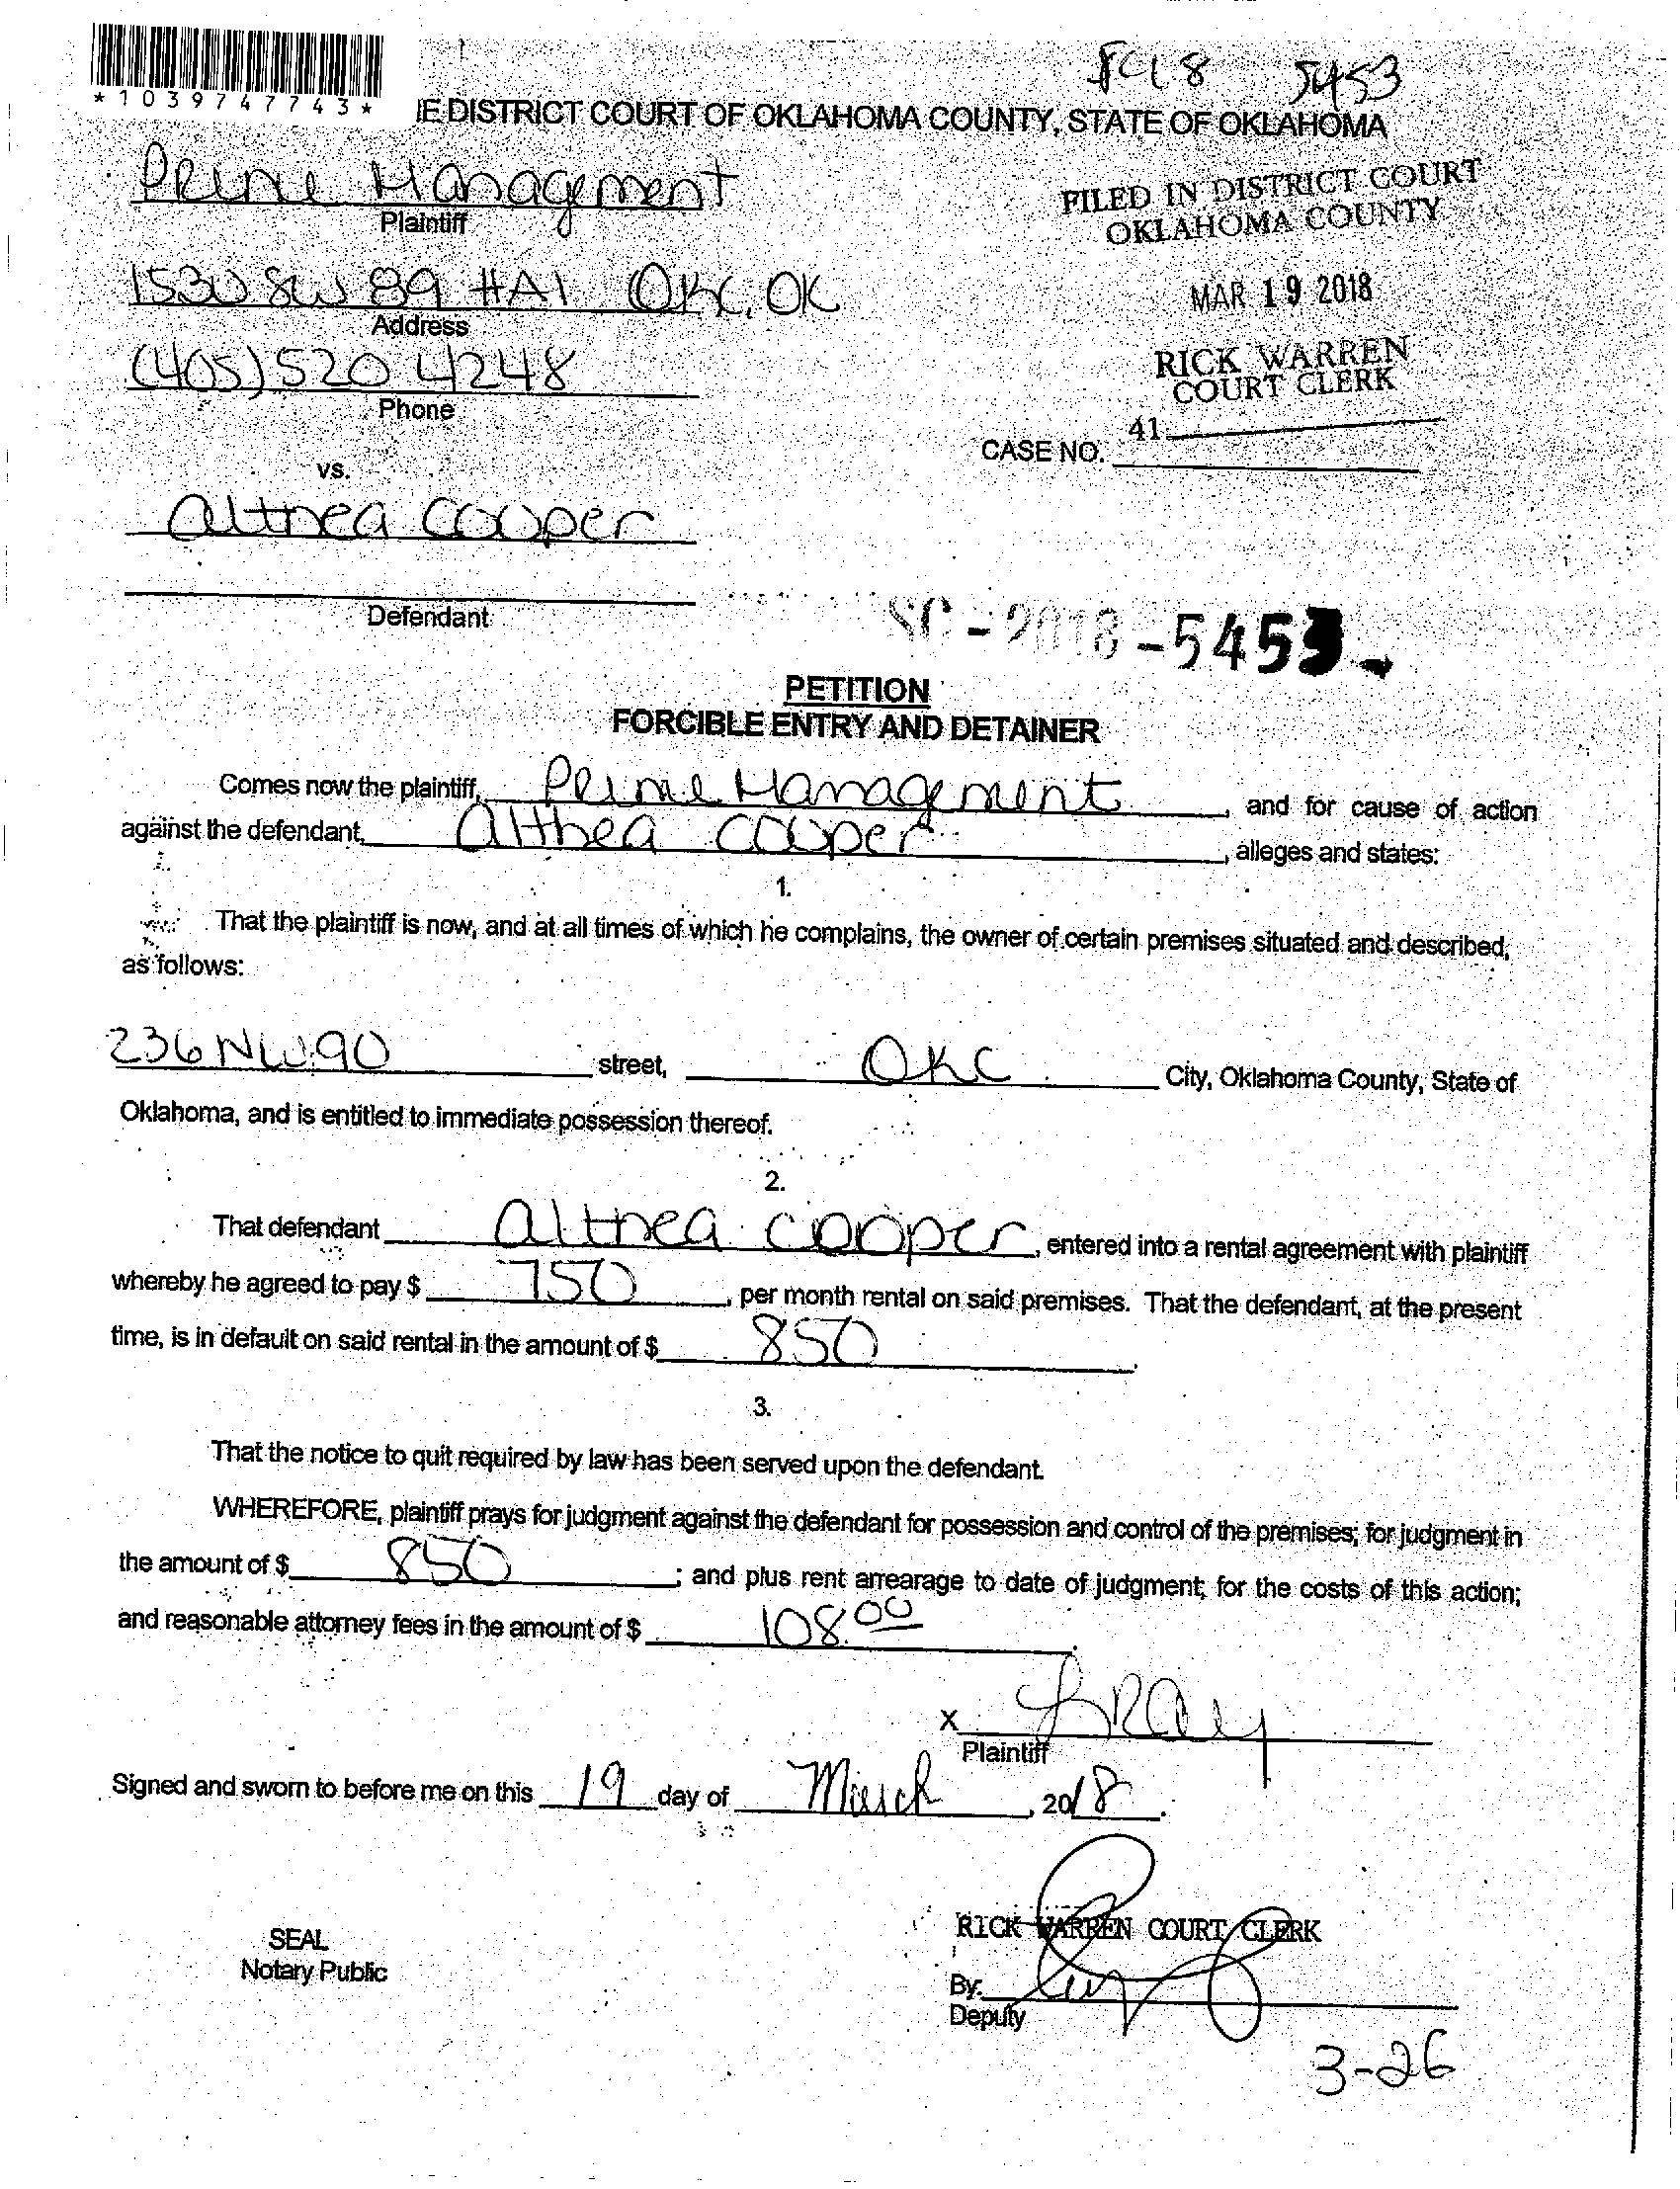 *1039747743*
SC18 5453
IE DISTRICT COURT OF OKLAHOMA COUNTY, STATE OF OKLAHOMA
Prime Management
Plaintiff
FILED IN DISTRICT COURT
OKLAHOMA COUNTY
1530 SW 89 #A1 OKC, OK
Address
MAR 19 2018
(405) 520 4248
Phone
RICK WARREN
COURT CLERK
41
CASE NO.
vs.
Althea Cooper
Defendant
SC-2018-5453
PETITION
FORCIBLE ENTRY AND DETAINER
Comes now the plaintiff, Prime Management, and for cause of action
against the defendant, Althea Cooper, alleges and states:
1.
That the plaintiff is now, and at all times of which he complains, the owner of certain premises situated and described,
as follows:
236 NW 90 street, OKC City, Oklahoma County, State of
Oklahoma, and is entitled to immediate possession thereof.
2.
That defendant Althea Cooper, entered into a rental agreement with plaintiff
whereby he agreed to pay $ 750, per month rental on said premises. That the defendant, at the present
time, is in default on said rental in the amount of $ 850.
3.
That the notice to quit required by law has been served upon the defendant.
WHEREFORE, plaintiff prays for judgment against the defendant for possession and control of the premises; for judgment in
the amount of $ 850; and plus rent arrearage to date of judgment; for the costs of this action;
and reasonable attorney fees in the amount of $ 108.00.
X
Plaintiff
Signed and sworn to before me on this 19 day of March, 2018.
SEAL
Notary Public
RICK WARREN COURT CLERK
By:
Deputy
3-26